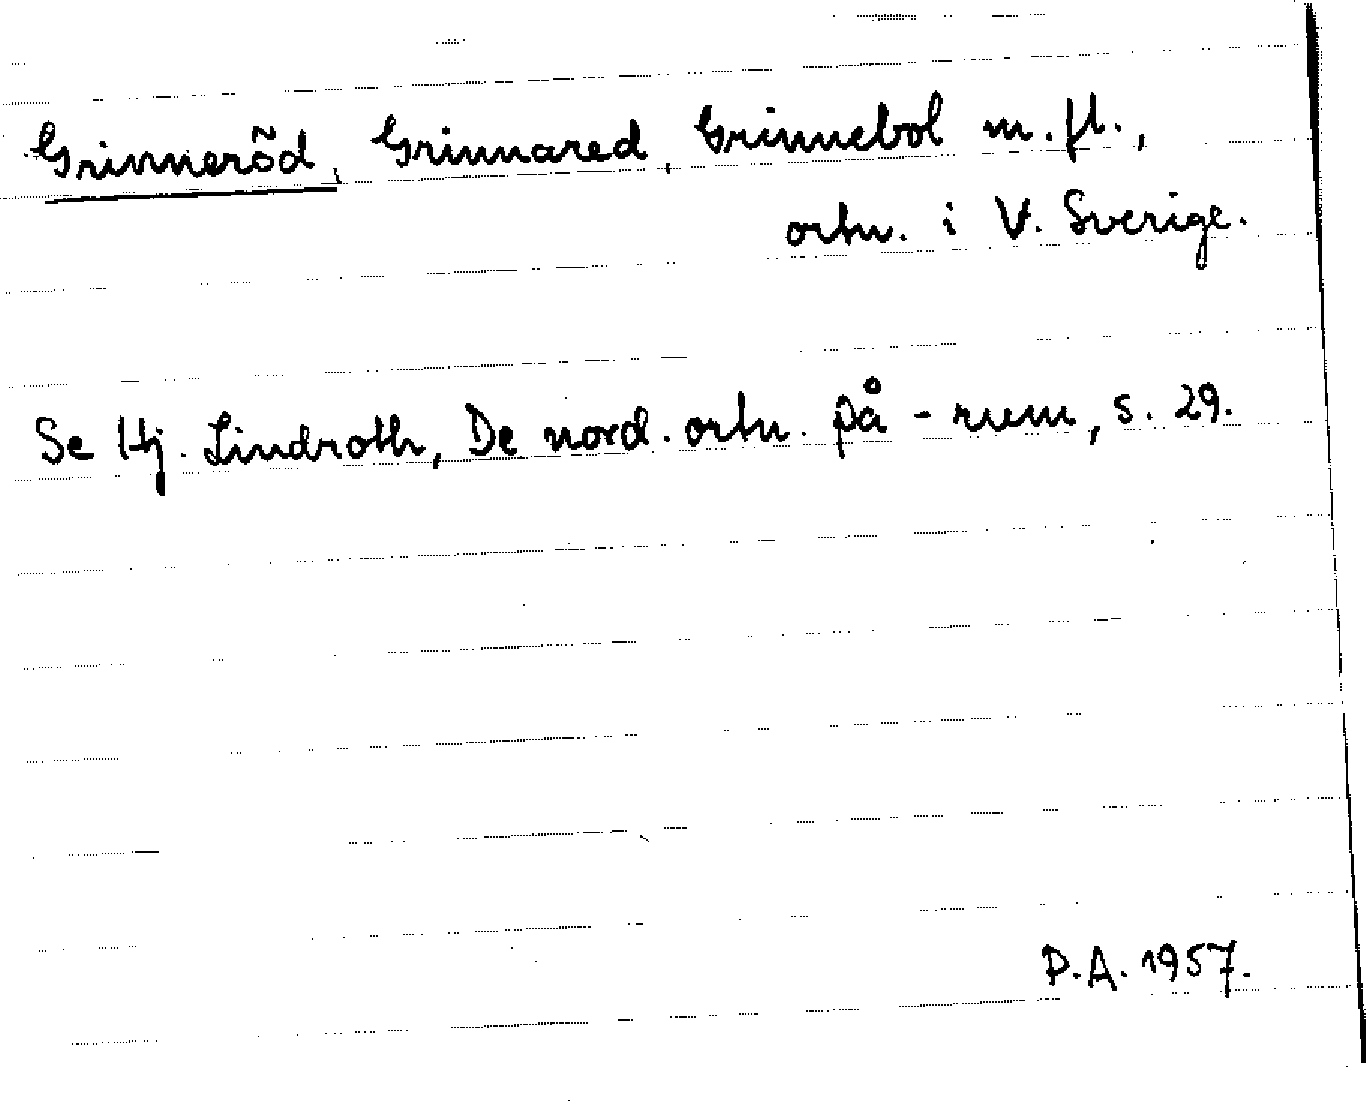 Grinneröd, Grinnared, Grinnebol m.fl.,
ortn. i V. Sverige.
Se Hj. Lindroth, De nord. ortn. på -rum, s. 29.
P.A. 1957.